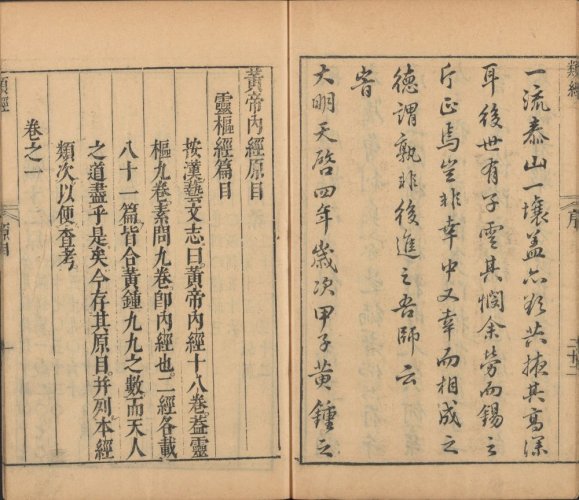 類經
序
二十二
一流泰山一壤蓋亦欲共掖其高深
耳後世有子雲其憫余勞而錫之
斤正焉豈非幸中又幸而相成之
德謂孰非後進之吾師云
旹
大明天啓四年歲次甲子黃鍾之
黃帝內經原目
靈樞經篇目
按漢藝文志曰黃帝內經十八卷蓋靈
樞九卷素問九卷卽內經也二經各載
八十一篇皆合黃鐘九九之數而天人
之道盡乎是矣今存其原目并列本經
類次以便查考
卷之一
類經
原目